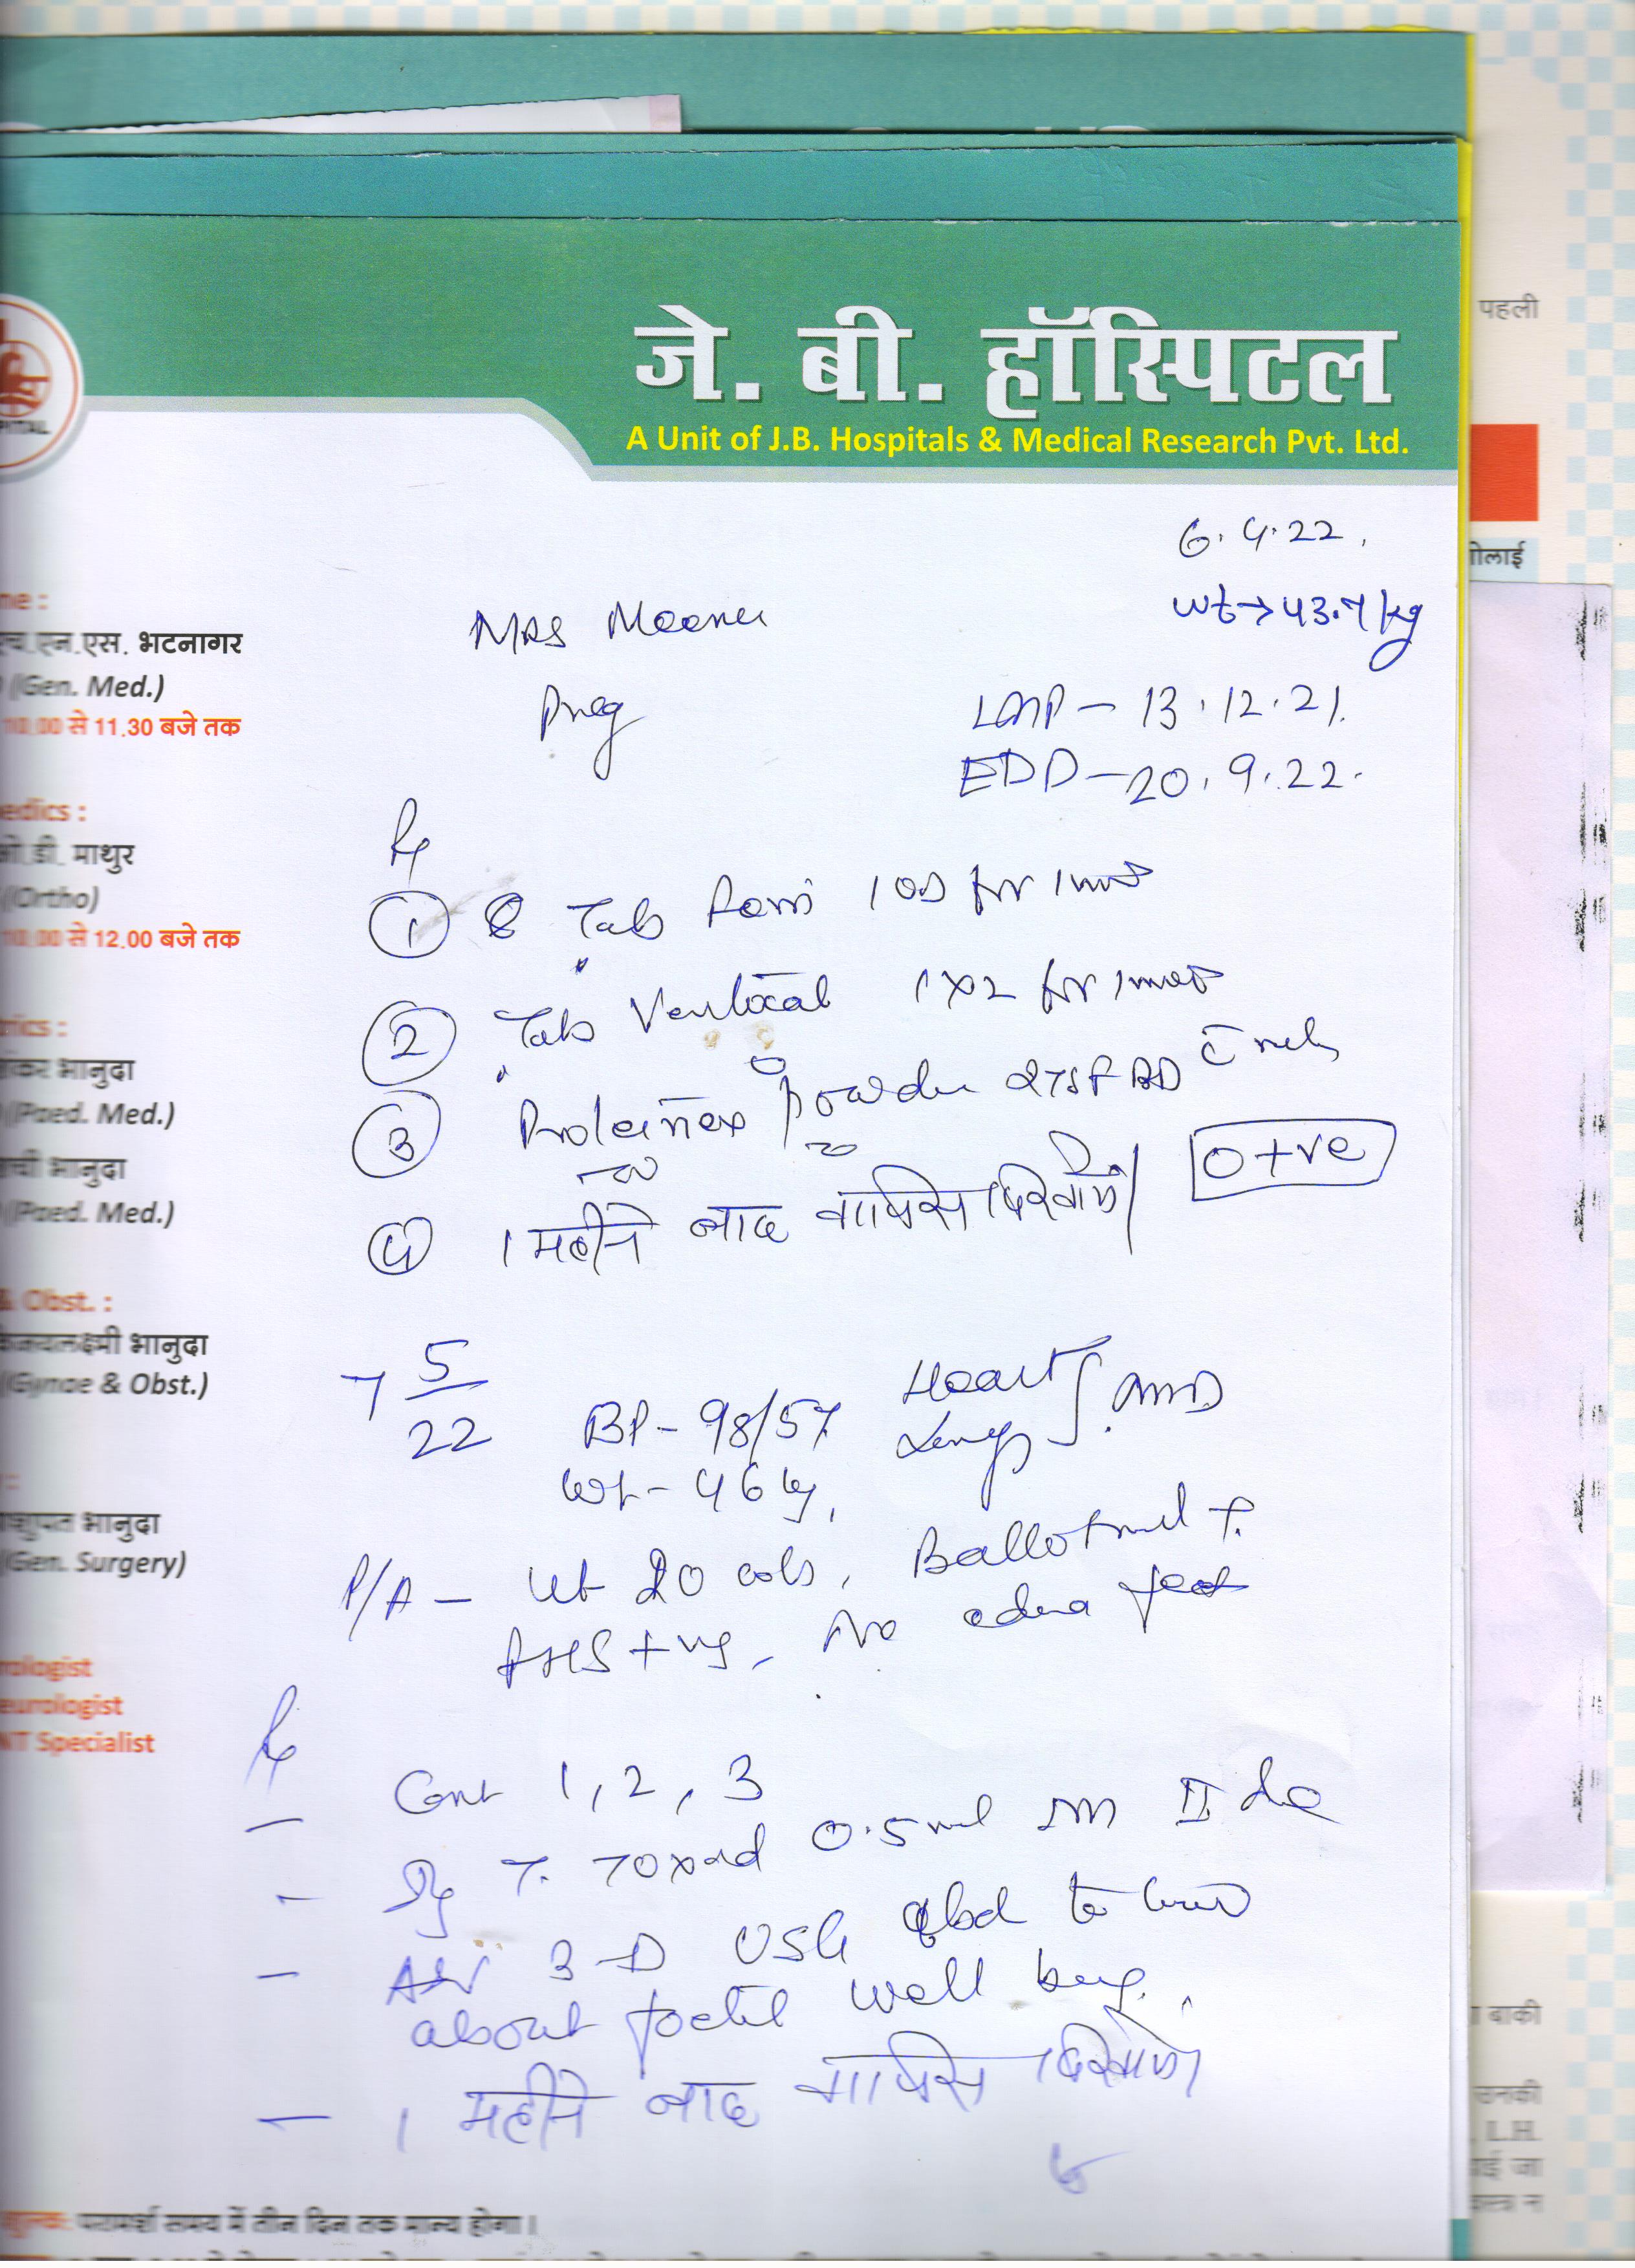 जे. बी. हॉस्पिटल
A Unit of J.B. Hospitals & Medical Research Pvt. Ltd.
पहली
6.4.22.
wt→43.7kg
Mrs Meenu
Preg
LMP - 13.12.21.
EDD - 20.9.22.
Rx
① Tab 1 OD for 1
② Tab 1x2 for 1
③ Proteinex powder 2TSF BD c̄ milk
O+ve
④ 1 महीने बाद वापिस दिखायें।
7 5/22
BP - 98/57
Heart
Lungs } NAD
Wt - 46 kg,
P/A - Ut 20 , Ballotment +.
FHS +ve, No edema feet
Rx
- Cont 1, 2, 3
- Inj T. Toxoid 0.5ml IM II
- Adv 3-D USG abd to know
about foetal well being.
- 1 महीने बाद वापिस दिखायें।
एच.एन.एस. भटनागर
(Gen. Med.)
10.00 से 11.30 बजे तक
edics :
ओ.डी. माथुर
(Ortho)
10.00 से 12.00 बजे तक
rics :
भानुदा
(Paed. Med.)
भानुदा
(Paed. Med.)
& Obst. :
विजयलक्ष्मी भानुदा
(Gynae & Obst.)
पशुपत भानुदा
(Gen. Surgery)
rologist
eurologist
NT Specialist
शुल्क: परामर्श समय में तीन दिन तक मान्य होगा।
गोलाई
बाकी
उनकी
L.H.